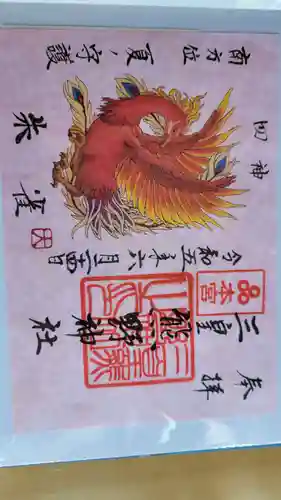 奉拝
三重 熊野神社
本宮
令和五年六月二十四日
四神
朱雀
南方位 夏ノ守護